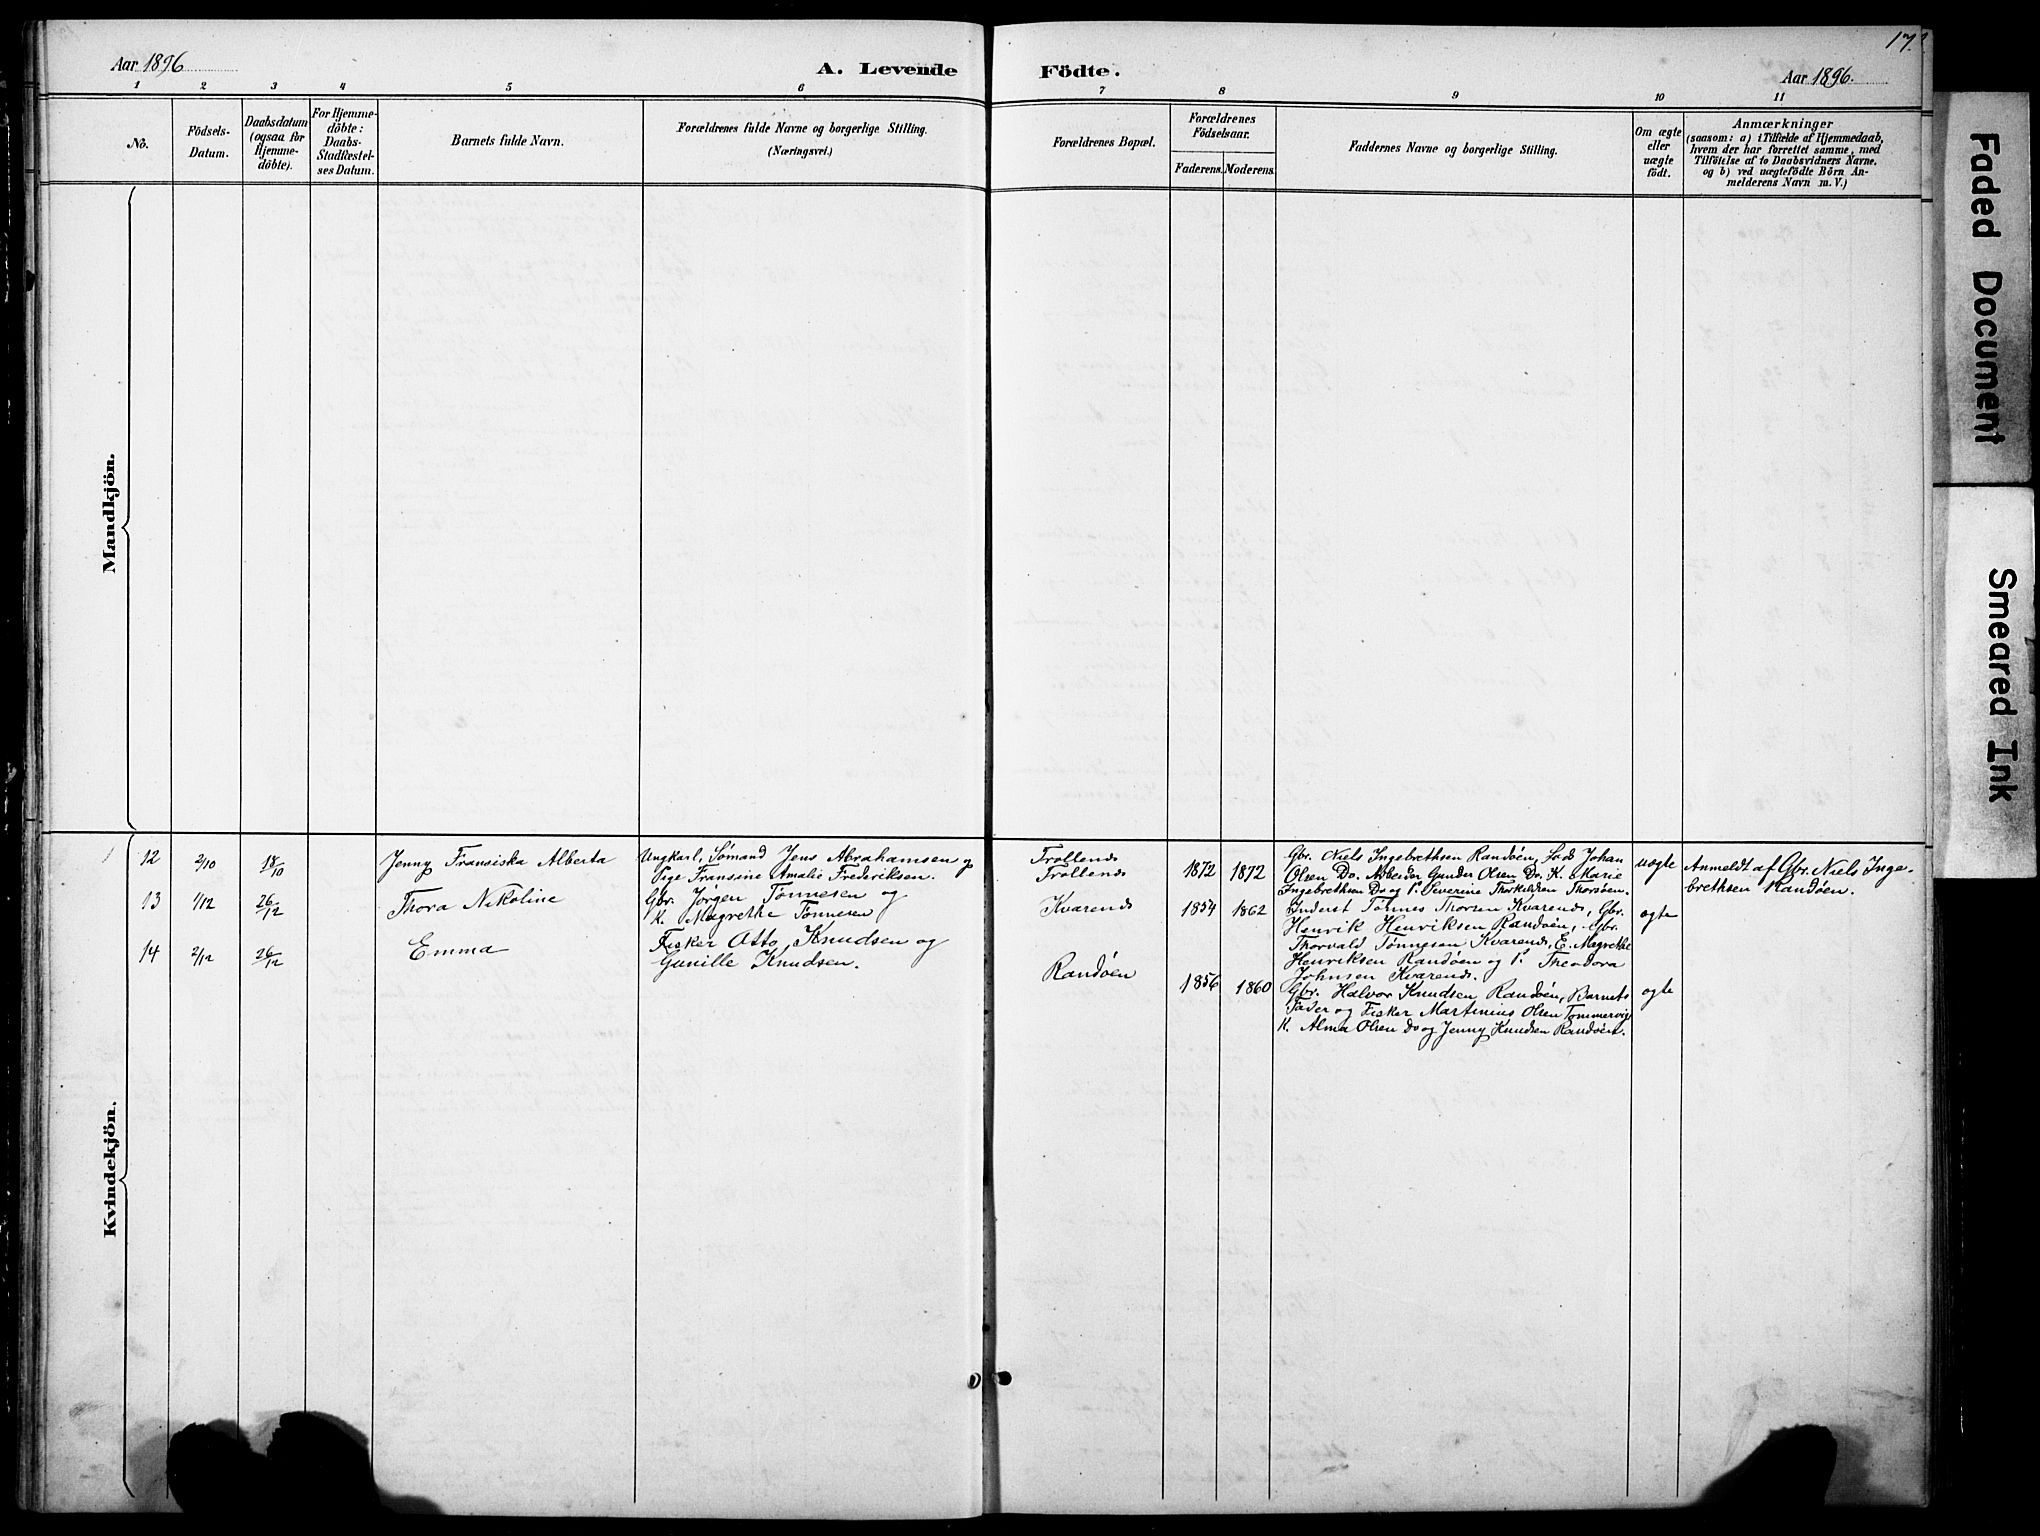 17.
Aar 1896
A. Levende Födte.
Aar 1896.
1 2 3 4 5 6 7 8 9 10 11
No.
Födsels-
Datum.
Daabsdatum
(ogsaa for
Hjemme-
döbte).
For Hjemme-
döbte:
Daabs-
Stadfæstel-
ses Datum.
Barnets fulde Navn.
Forældrenes fulde Navne og borgerlige Stilling.
(Næringsvei.)
Forældrenes Bopæl.
Forældrenes
Födselsaar.
Faderens. Moderens.
Faddernes Navne og borgerlige Stilling.
Om ægte
eller
uægte
födt.
Anmærkninger
(saasom: a) i Tilfælde af Hjemmedaab,
hvem der har forrettet samme, med
Tilföielse af to Daabsvidners Navne.
og b) ved uægtefödte Börn An-
melderens Navn m. V.)
Mandkjön.
Kvindekjön.
12
2/10
18/10
Jenny Fransiska Alberta
Ungkarl, Sømand Jens Abrahamsen og
Pige Fransine Amalie Frederiksen.
Trollends
Trollends
1872
1872
Gbr. Niels Ingebrethsen Randöen, Johan
Olsen Do. Arbeider Gunder Olsen Do. K. Marie
Ingebrethsen Do og P. Severine Thorkeldsen Thorsöen.
uægte
Anmeldt af Gbr. Niels Inge-
brethsen Randöen.
13
1/12
26/12
Thora Nikoline
Gbr. Jörgen Tönnesen og
K. Magrethe Tönnesen
Kvarends
1854
1862
Inderst Tönnes Thorsen Kvarends, Gbr.
Henrik Henriksen Randöen, Gbr.
Thorvald Tønnesen Kvarends, E. Magrethe
Henriksen Randöen og P. Theodora
Johnsen Kvarends.
ægte
14
2/12
26/12
Emma
Fisker Otto Knudsen og
Gunille Knudsen.
Randöen
1856
1860
Gbr. Halvor Knudsen Randöen, Barnets
Fader og Fisker Martinius Olsen Tømmervig
K. Alma Olsen Do og Jenny Knudsen Randöen.
ægte
Faded Document
Smeared Ink